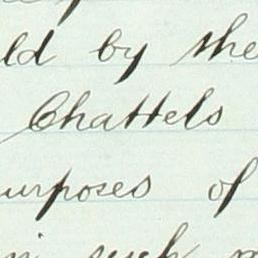 ld by the
Chattels
urposes of
such